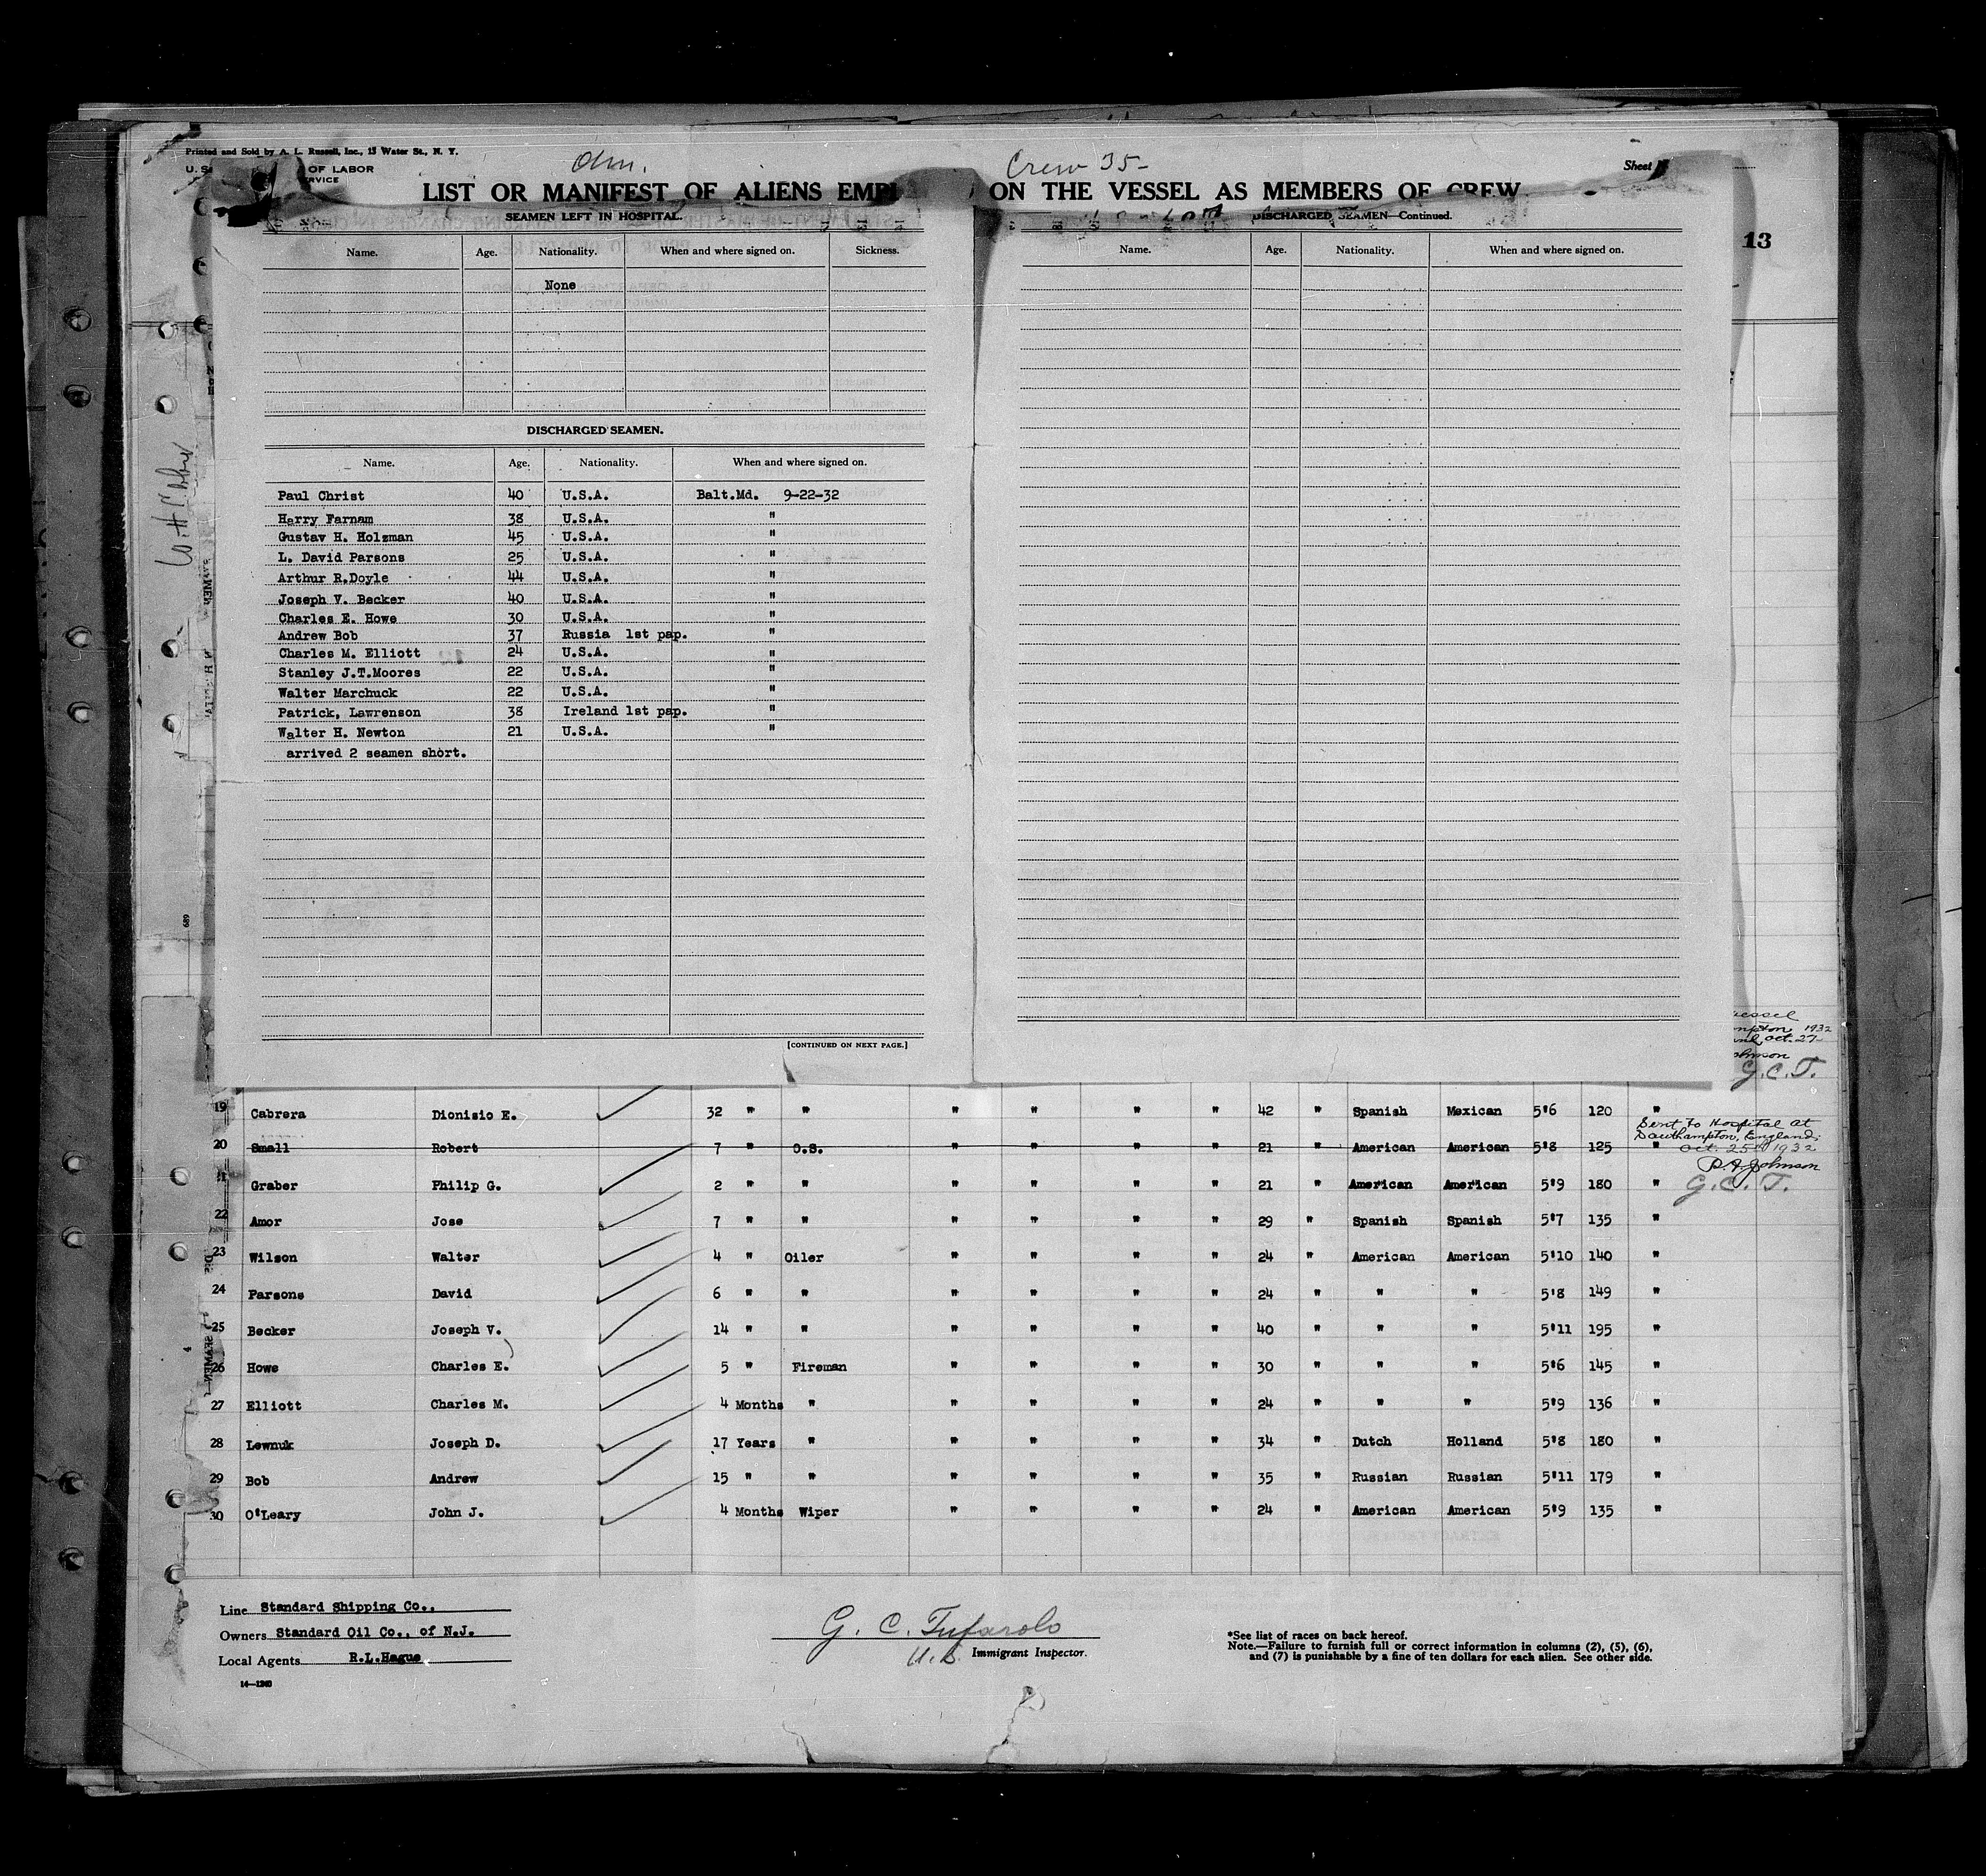 Printed and Sold by A. L. Russell, Inc., 15 Water St., N. Y.
OF LABOR
Crew 35-
Sheet
LIST OR MANIFEST OF ALIENS EMPL ON THE VESSEL AS MEMBERS OF CREW
13
SEAMEN LEFT IN HOSPITAL.
Name. Age. Nationality. When and where signed on. Sickness.
None
DISCHARGED SEAMEN.
Name. Age. Nationality. When and where signed on.
Paul Christ 40 U.S.A. Balt.Md. 9-22-32
Harry Farnam 38 U.S.A. "
Gustav H. Holzman 45 U.S.A. "
L. David Parsons 25 U.S.A. "
Arthur R.Doyle 44 U.S.A. "
Joseph V. Becker 40 U.S.A. "
Charles E. Howe 30 U.S.A. "
Andrew Bob 37 Russia 1st pap. "
Charles M. Elliott 24 U.S.A. "
Stanley J.T.Moores 22 U.S.A. "
Walter Marchuck 22 U.S.A. "
Patrick, Lawrenson 38 Ireland 1st pap. "
Walter H. Newton 21 U.S.A. "
arrived 2 seamen short.
[CONTINUED ON NEXT PAGE.]
DISCHARGED SEAMEN—Continued.
Name. Age. Nationality. When and where signed on.
689
1932
Oct. 27
G.C.T.
19 Cabrera Dionisio E. 32 " " " " " " 42 " Spanish Mexican 5'6 120 "
20 Small Robert 7 " O.S. " " " " 21 " American American 5'8 125 "
Sent to Hospital at
Southampton, England,
Oct. 25th 1932
P.A. Johnson
G.C.T.
21 Graber Philip G. 2 " " " " " " 21 " American American 5'9 180 "
22 Amor Jose 7 " " " " " " 29 " Spanish Spanish 5'7 135 "
23 Wilson Walter 4 " Oiler " " " " 24 " American American 5'10 140 "
24 Parsons David 6 " " " " " " 24 " " " 5'8 149 "
25 Becker Joseph V. 14 " " " " " " 40 " " " 5'11 195 "
26 Howe Charles E. 5 " Fireman " " " " 30 " " " 5'6 145 "
27 Elliott Charles M. 4 Months " " " " " 24 " " " 5'9 136 "
28 Lewnuk Joseph D. 17 Years " " " " " 34 " Dutch Holland 5'8 180 "
29 Bob Andrew 15 " " " " " " 35 " Russian Russian 5'11 179 "
30 O'Leary John J. 4 Months Wiper " " " " 24 " American American 5'9 135 "
Line Standard Shipping Co.,
Owners Standard Oil Co., of N.J.
Local Agents R.L.Hague
14—1240
G. C. Tufarolo
U.S. Immigrant Inspector.
*See list of races on back hereof.
Note.—Failure to furnish full or correct information in columns (2), (5), (6),
and (7) is punishable by a fine of ten dollars for each alien. See other side.